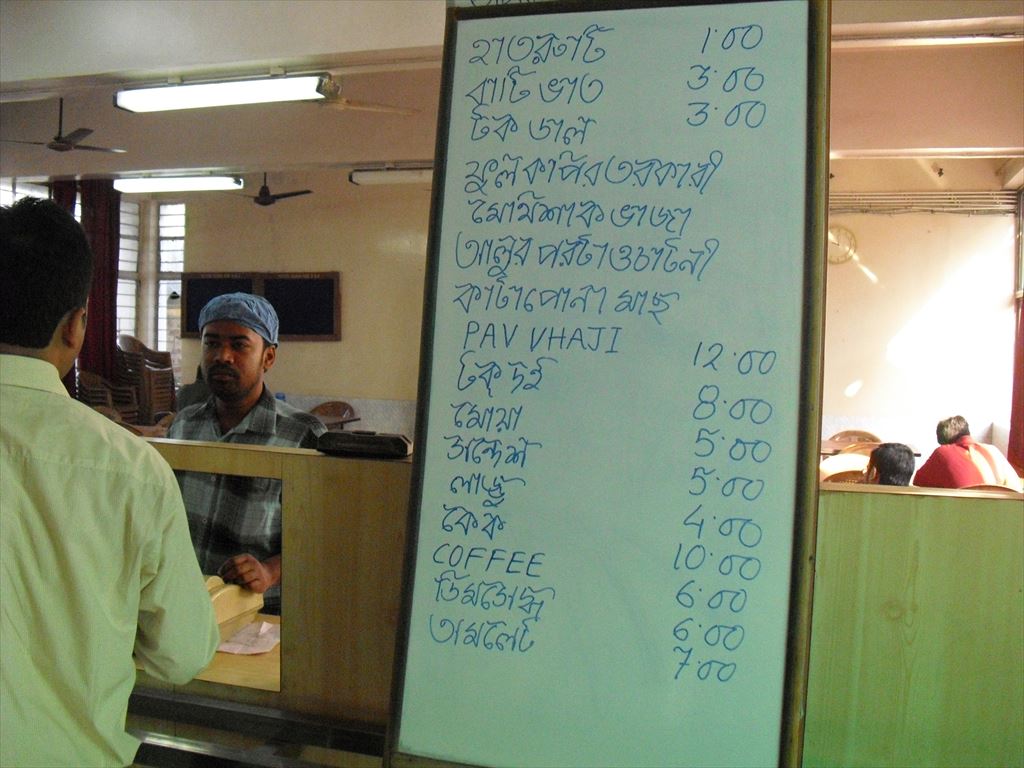 হাতরুটি 1.00
বাটি ভাত 3.00
টক ডাল 3.00
ফুলকপির তরকারী
মেথিশাক ভাজা
আলুর পরটা ও চাটনী
কাটাপোনা মাছ
PAV VHAJI 12.00
টক দই 8.00
মোয়া 5.00
সন্দেশ 5.00
লাড্ডু 4.00
কেক 10.00
COFFEE 6.00
ডিমসেদ্ধ 6.00
অমলেট 7.00